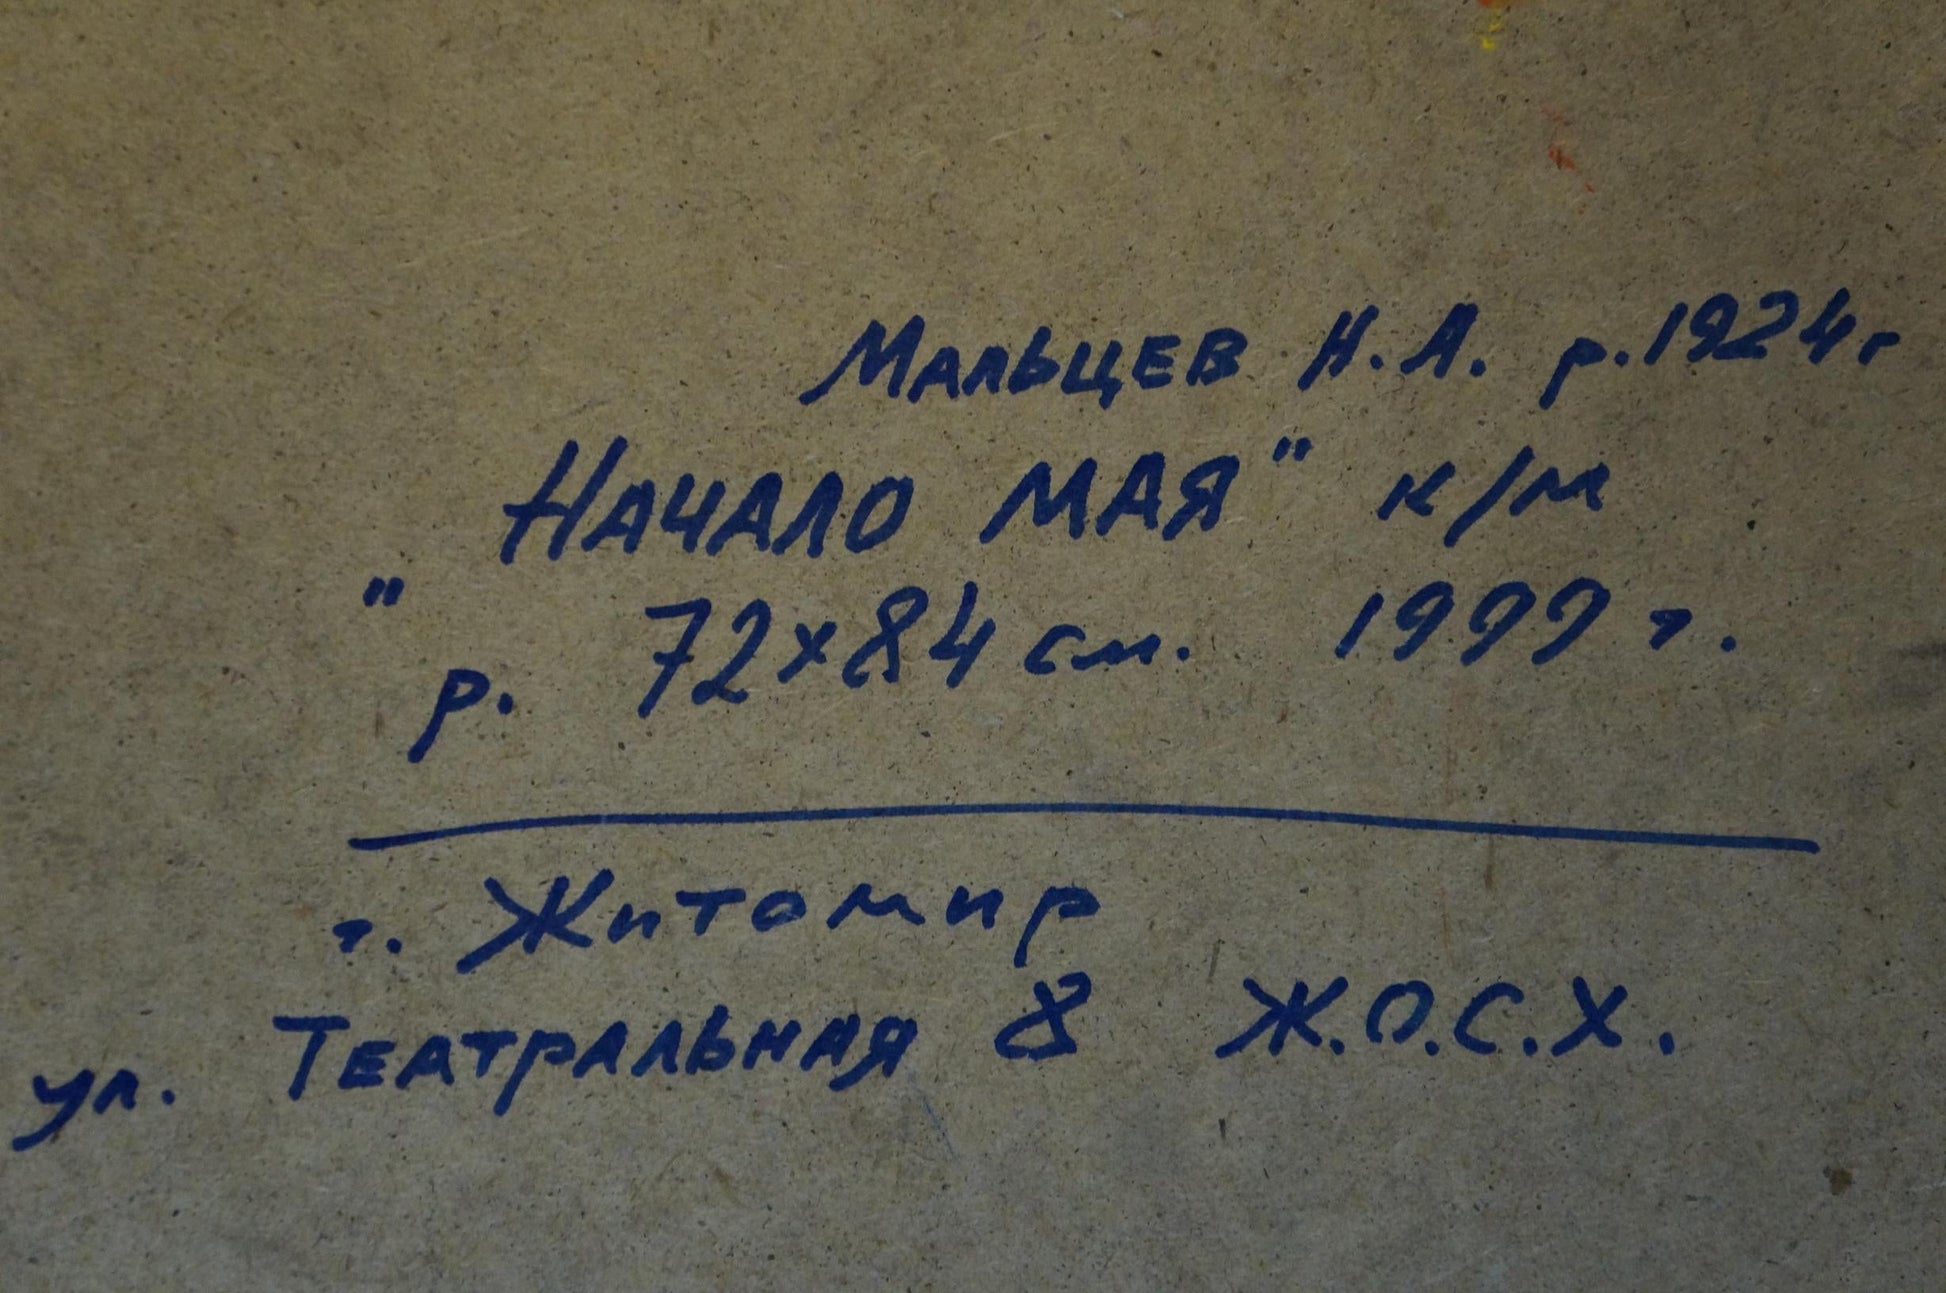 Мальцев Н.А. р.1924г
"Начало мая" к/м
р. 72х84 см. 1999 г.
г. Житомир
ул. Театральная 8 Ж.О.С.Х.